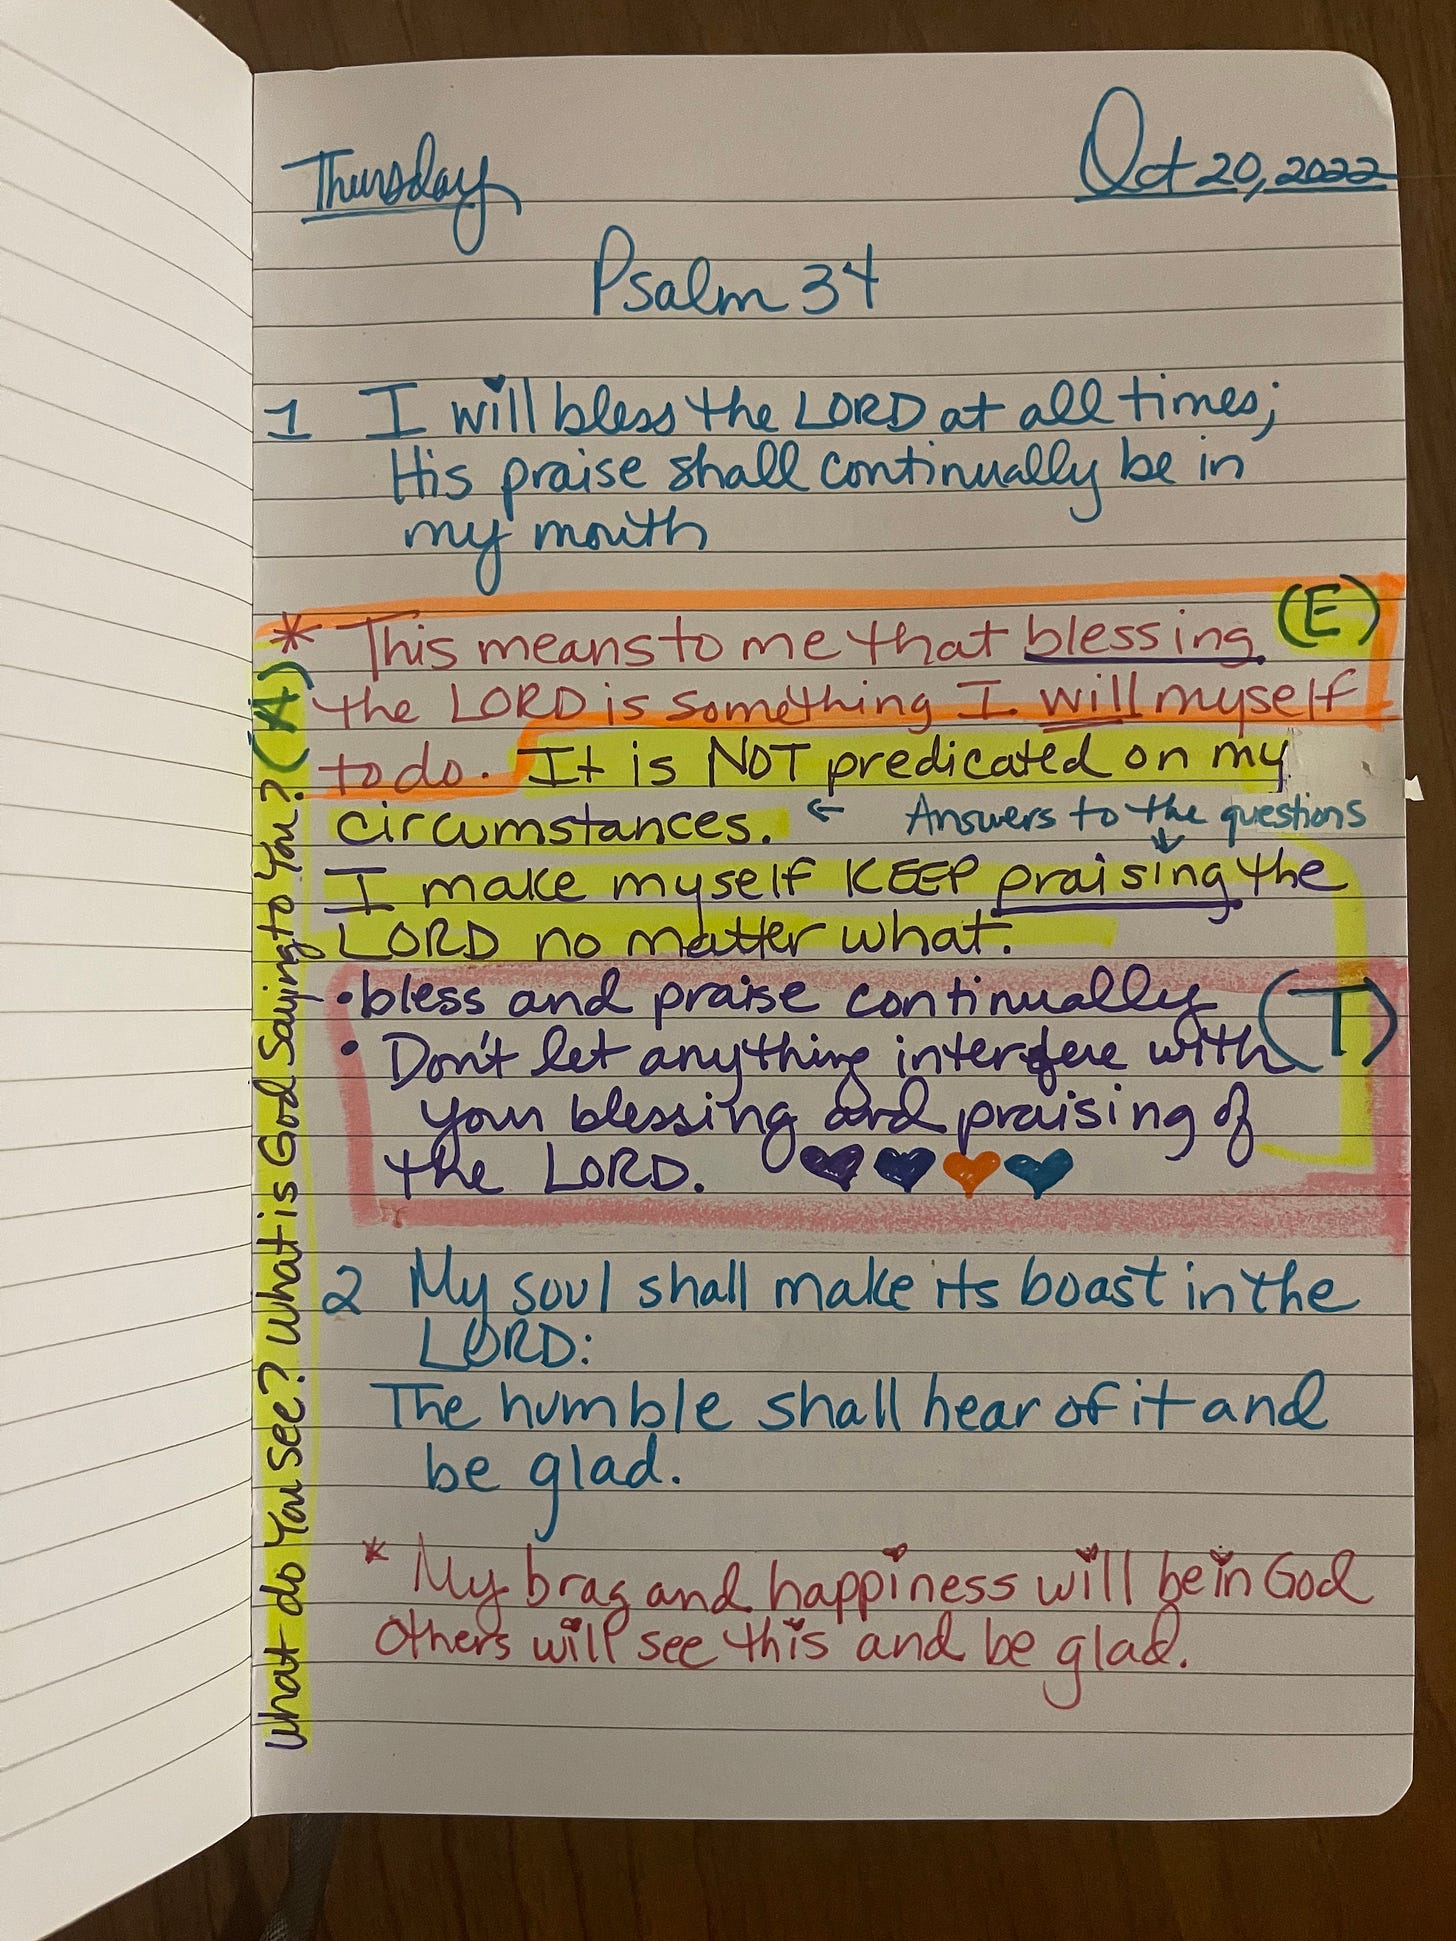 Thursday Oct 20, 2022
Psalm 34
1 I will bless the LORD at all times;
His praise shall continually be in
my mouth
* This means to me that blessing (E)
the LORD is something I will myself
to do. It is NOT predicated on my
circumstances. ← Answers to the questions ↓
I make myself KEEP praising the
LORD no matter what.
• bless and praise continually (T)
• Don't let anything interfere with
your blessing and praising of
the LORD.
2 My soul shall make its boast in the
LORD:
The humble shall hear of it and
be glad.
* My brag and happiness will be in God
Others will see this and be glad.
What do You see? What is God Saying to You? (A)